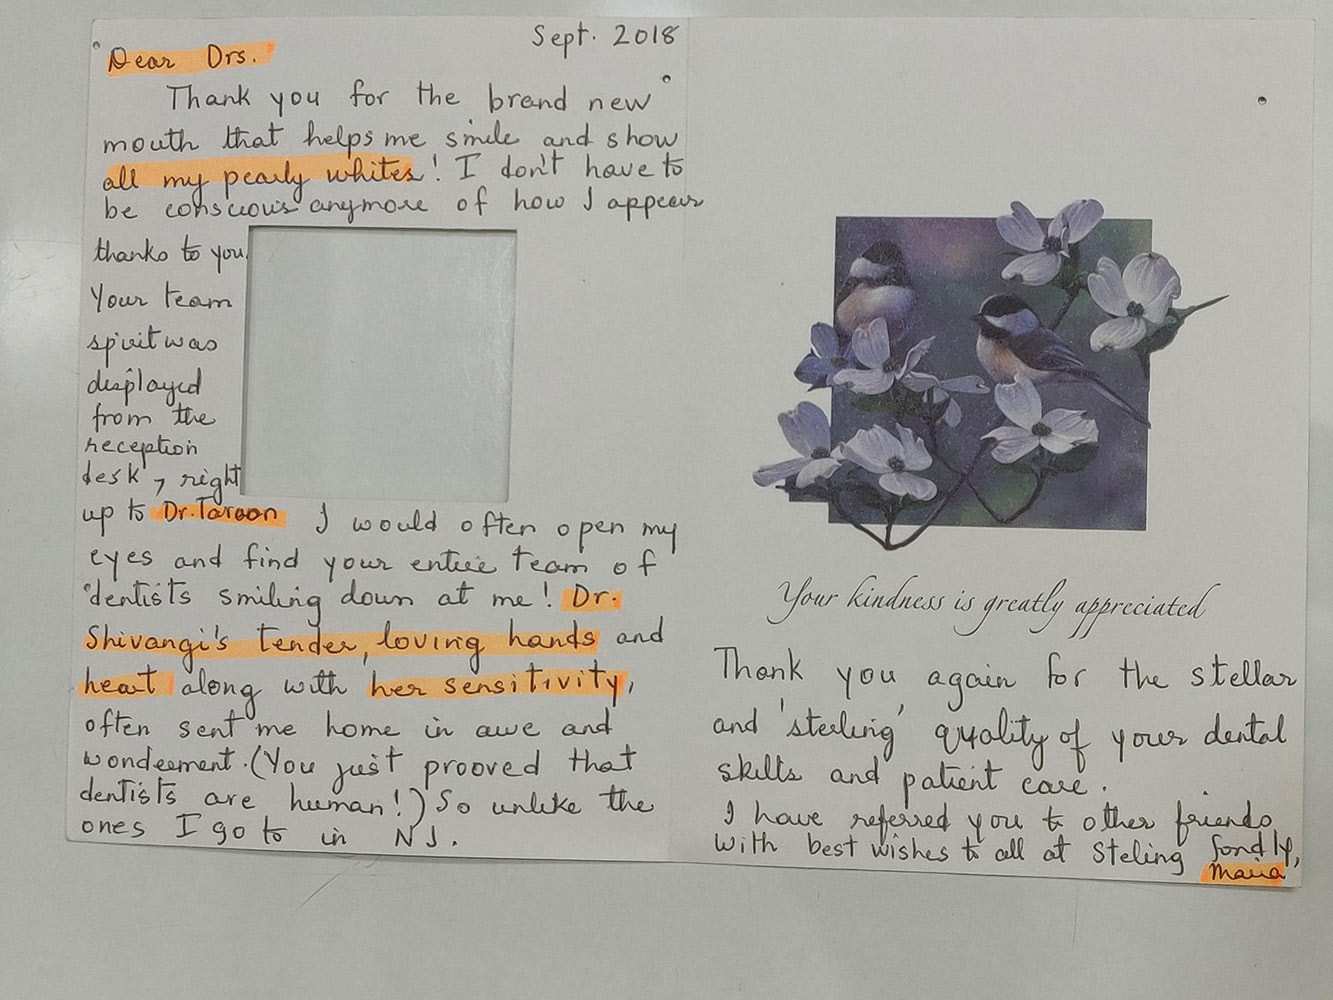 Sept. 2018
Dear Drs.
Thank you for the brand new
mouth that helps me smile and show
all my pearly whites! I don't have to
be conscious anymore of how I appear
thanks to you.
Your team
spirit was
displayed
from the
reception
desk, right
up to Dr. Taroon I would often open my
eyes and find your entire team of
dentists smiling down at me! Dr.
Shivangi's tender, loving hands and
heart along with her sensitivity,
often sent me home in awe and
wonderment. (You just prooved that
dentists are human!) So unlike the
ones I go to in NJ.
Your kindness is greatly appreciated
Thank you again for the stellar
and 'sterling' quality of your dental
skills and patient care.
I have referred you to other friends
with best wishes to all at Steling fondly,
Maria